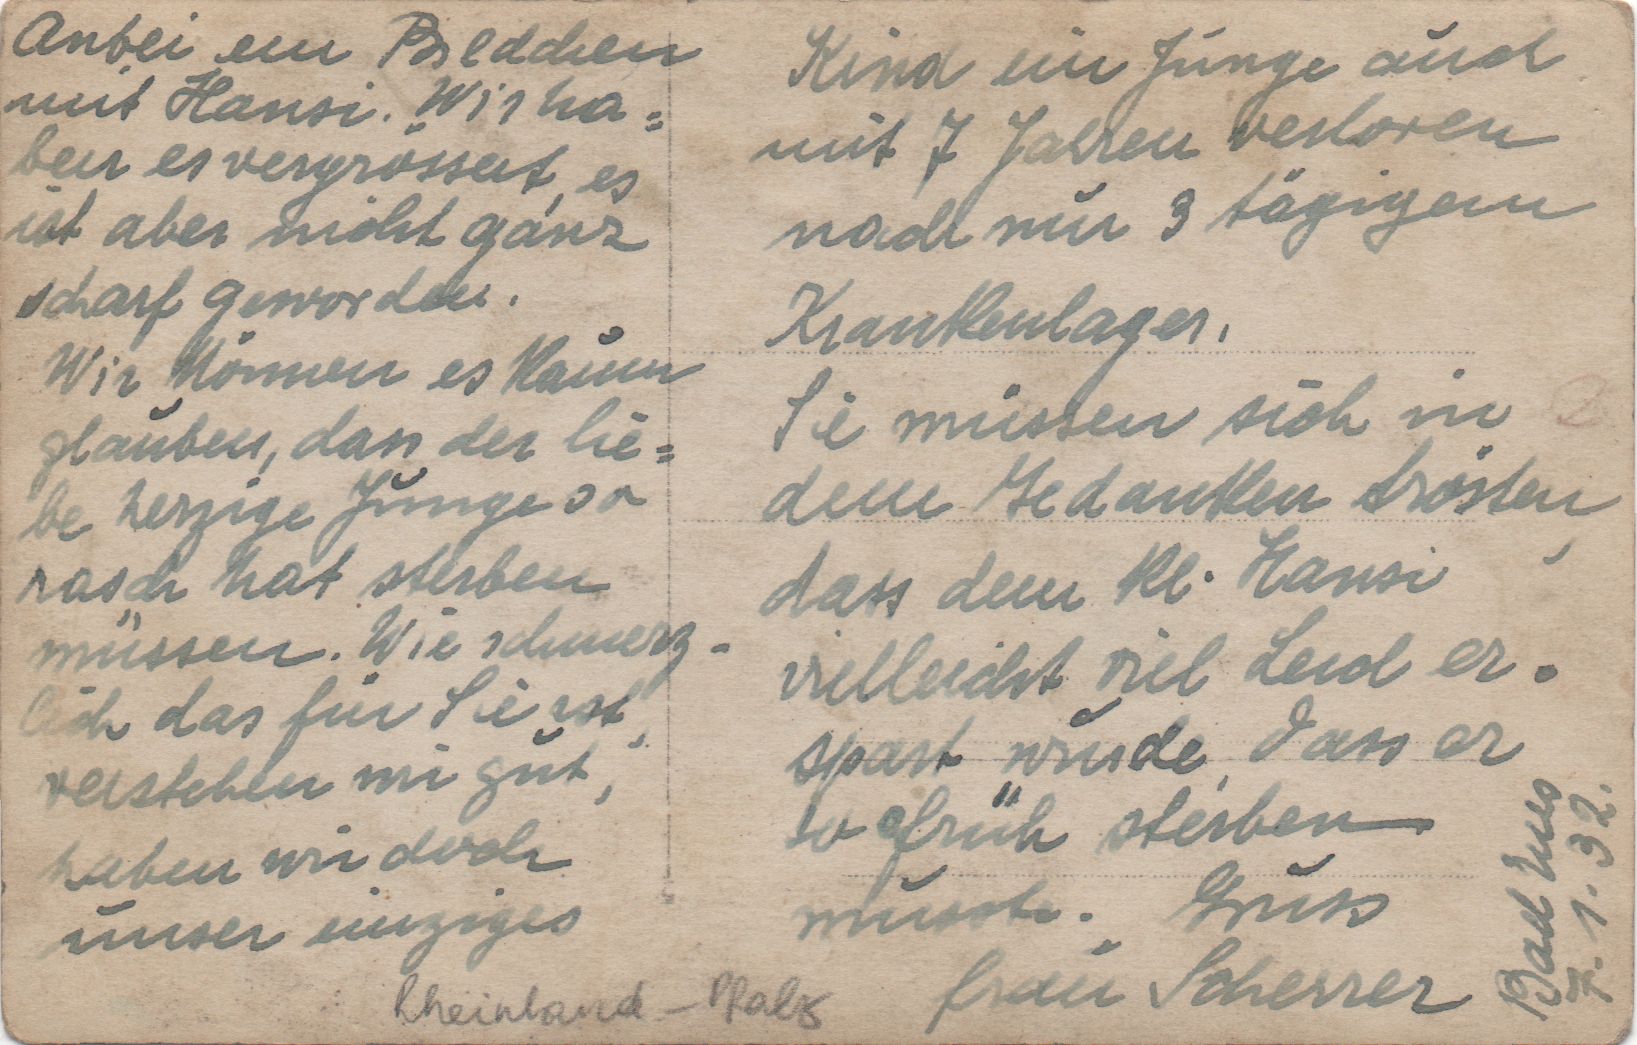 Anbei ein Bildchen
mit Hansi. Wir ha=
ben es vergrössert, es
ist aber nicht ganz
scharf geworden.
Wir können es kaum
glauben, dass der lie=
be herzige Junge so
rasch hat sterben
müssen. Wie schmerz-
lich das für Sie ist,
verstehen wir gut,
haben wir doch
unser einziges
Kind ein Junge auch
mit 7 Jahren verloren
nach nur 3 tägigem
Krankenlager.
Sie müssen sich in
dem Gedanken trösten,
dass dem kl. Hansi
vielleicht viel Leid er-
spart wurde, dass er
so früh sterben
musste. Gruss
Frau Scherrer
Bad Ems
7. 1. 32.
Rheinland - Pfalz